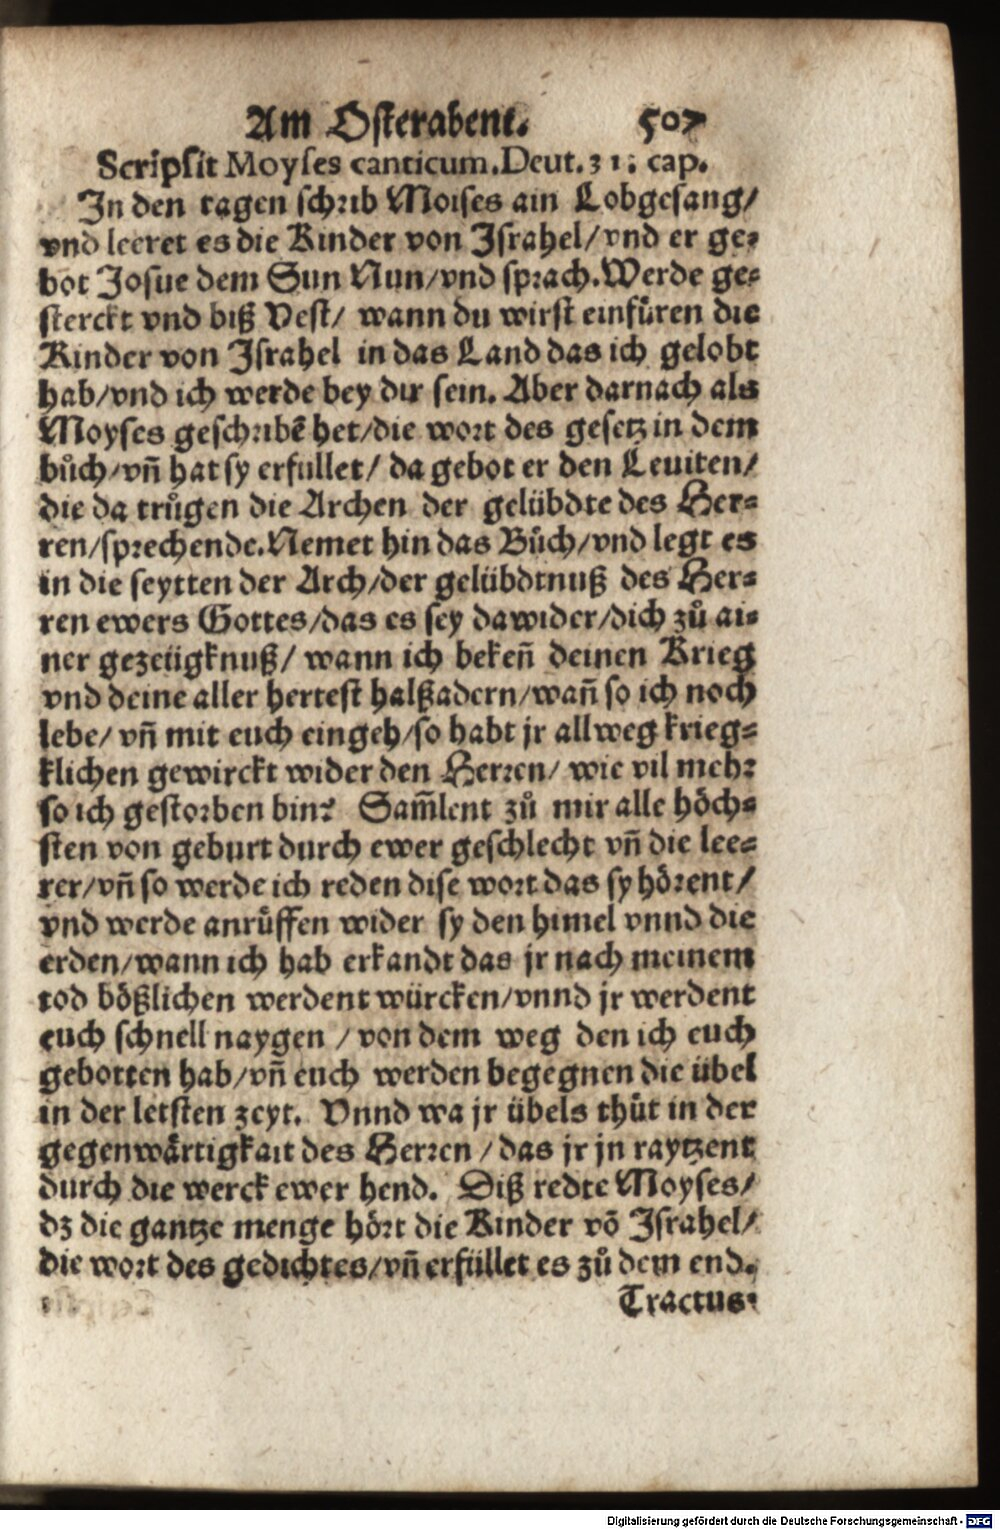 Am Osterabent. 507
Scripsit Moyses canticum. Deut. 31. cap.
In den tagen schrib Moises ain Lobgesang/
vnd leeret es die Kinder von Israhel/vnd er ge-
bot Josue dem Sun Nun/vnd sprach. Werde ge-
sterckt vnd biß Vest/ wann du wirst einfüren die
Kinder von Israhel in das Land das ich gelobt
hab/vnd ich werde bey dir sein. Aber darnach als
Moyses geschribē het/die wort des gesetz in dem
bůch/vñ hat sy erfüllet/ da gebot er den Leuiten/
die da trůgen die Archen der gelübdte des Her-
ren/sprechende. Nemet hin das Bůch/vnd legt es
in die seytten der Arch/der gelübdtnuß des Her-
ren ewers Gottes/das es sey dawider/dich zů ai-
ner gezeügknuß/ wann ich bekeñ deinen Krieg
vnd deine aller hertest halßadern/wañ so ich noch
lebe/ vñ mit euch eingeh/so habt jr allweg krieg-
klichen gewirckt wider den Herren/ wie vil mehr
so ich gestorben bin? Sam̃lent zů mir alle höch-
sten von geburt durch ewer geschlecht vñ die lee-
rer/vñ so werde ich reden dise wort das sy hörent/
vnd werde anrüffen wider sy den himel vnnd die
erden/wann ich hab erkandt das jr nach meinem
tod bößlichen werdent würcken/vnnd jr werdent
euch schnell naygen / von dem weg den ich euch
gebotten hab/vñ euch werden begegnen die übel
in der letsten zeyt. Vnnd wa jr übels thüt in der
gegenwärtigkait des Herren / das jr jn raytzent
durch die werck ewer hend. Diß redte Moyses/
dz die gantze menge hört die Kinder vō Israhel/
die wort des gedichtes/vñ erfüllet es zů dem end.
Tractus.
Digitalisierung gefördert durch die Deutsche Forschungsgemeinschaft - DFG